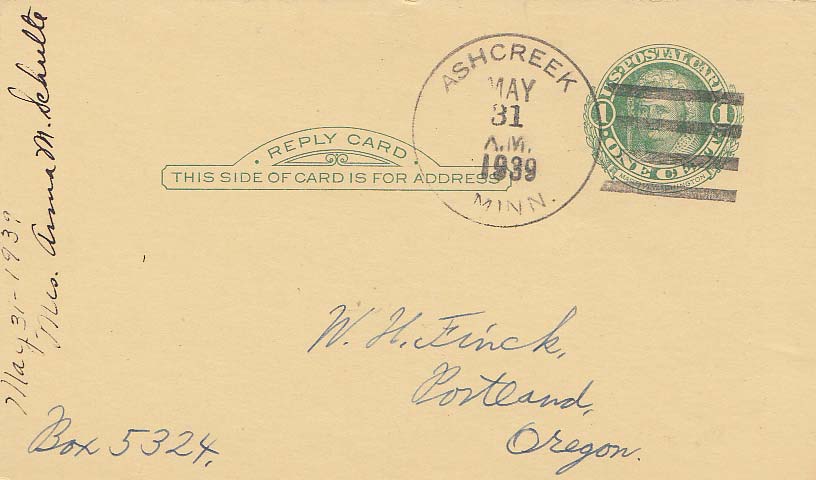 May 31 - 1939
Mrs. Anna M. Schulte
REPLY CARD
THIS SIDE OF CARD IS FOR ADDRESS
ASHCREEK
MAY
31
A.M.
1939
MINN.
U.S. POSTAL CARD
1 1
ONE CENT
W. H. Finck,
Portland,
Oregon.
Box 5324,